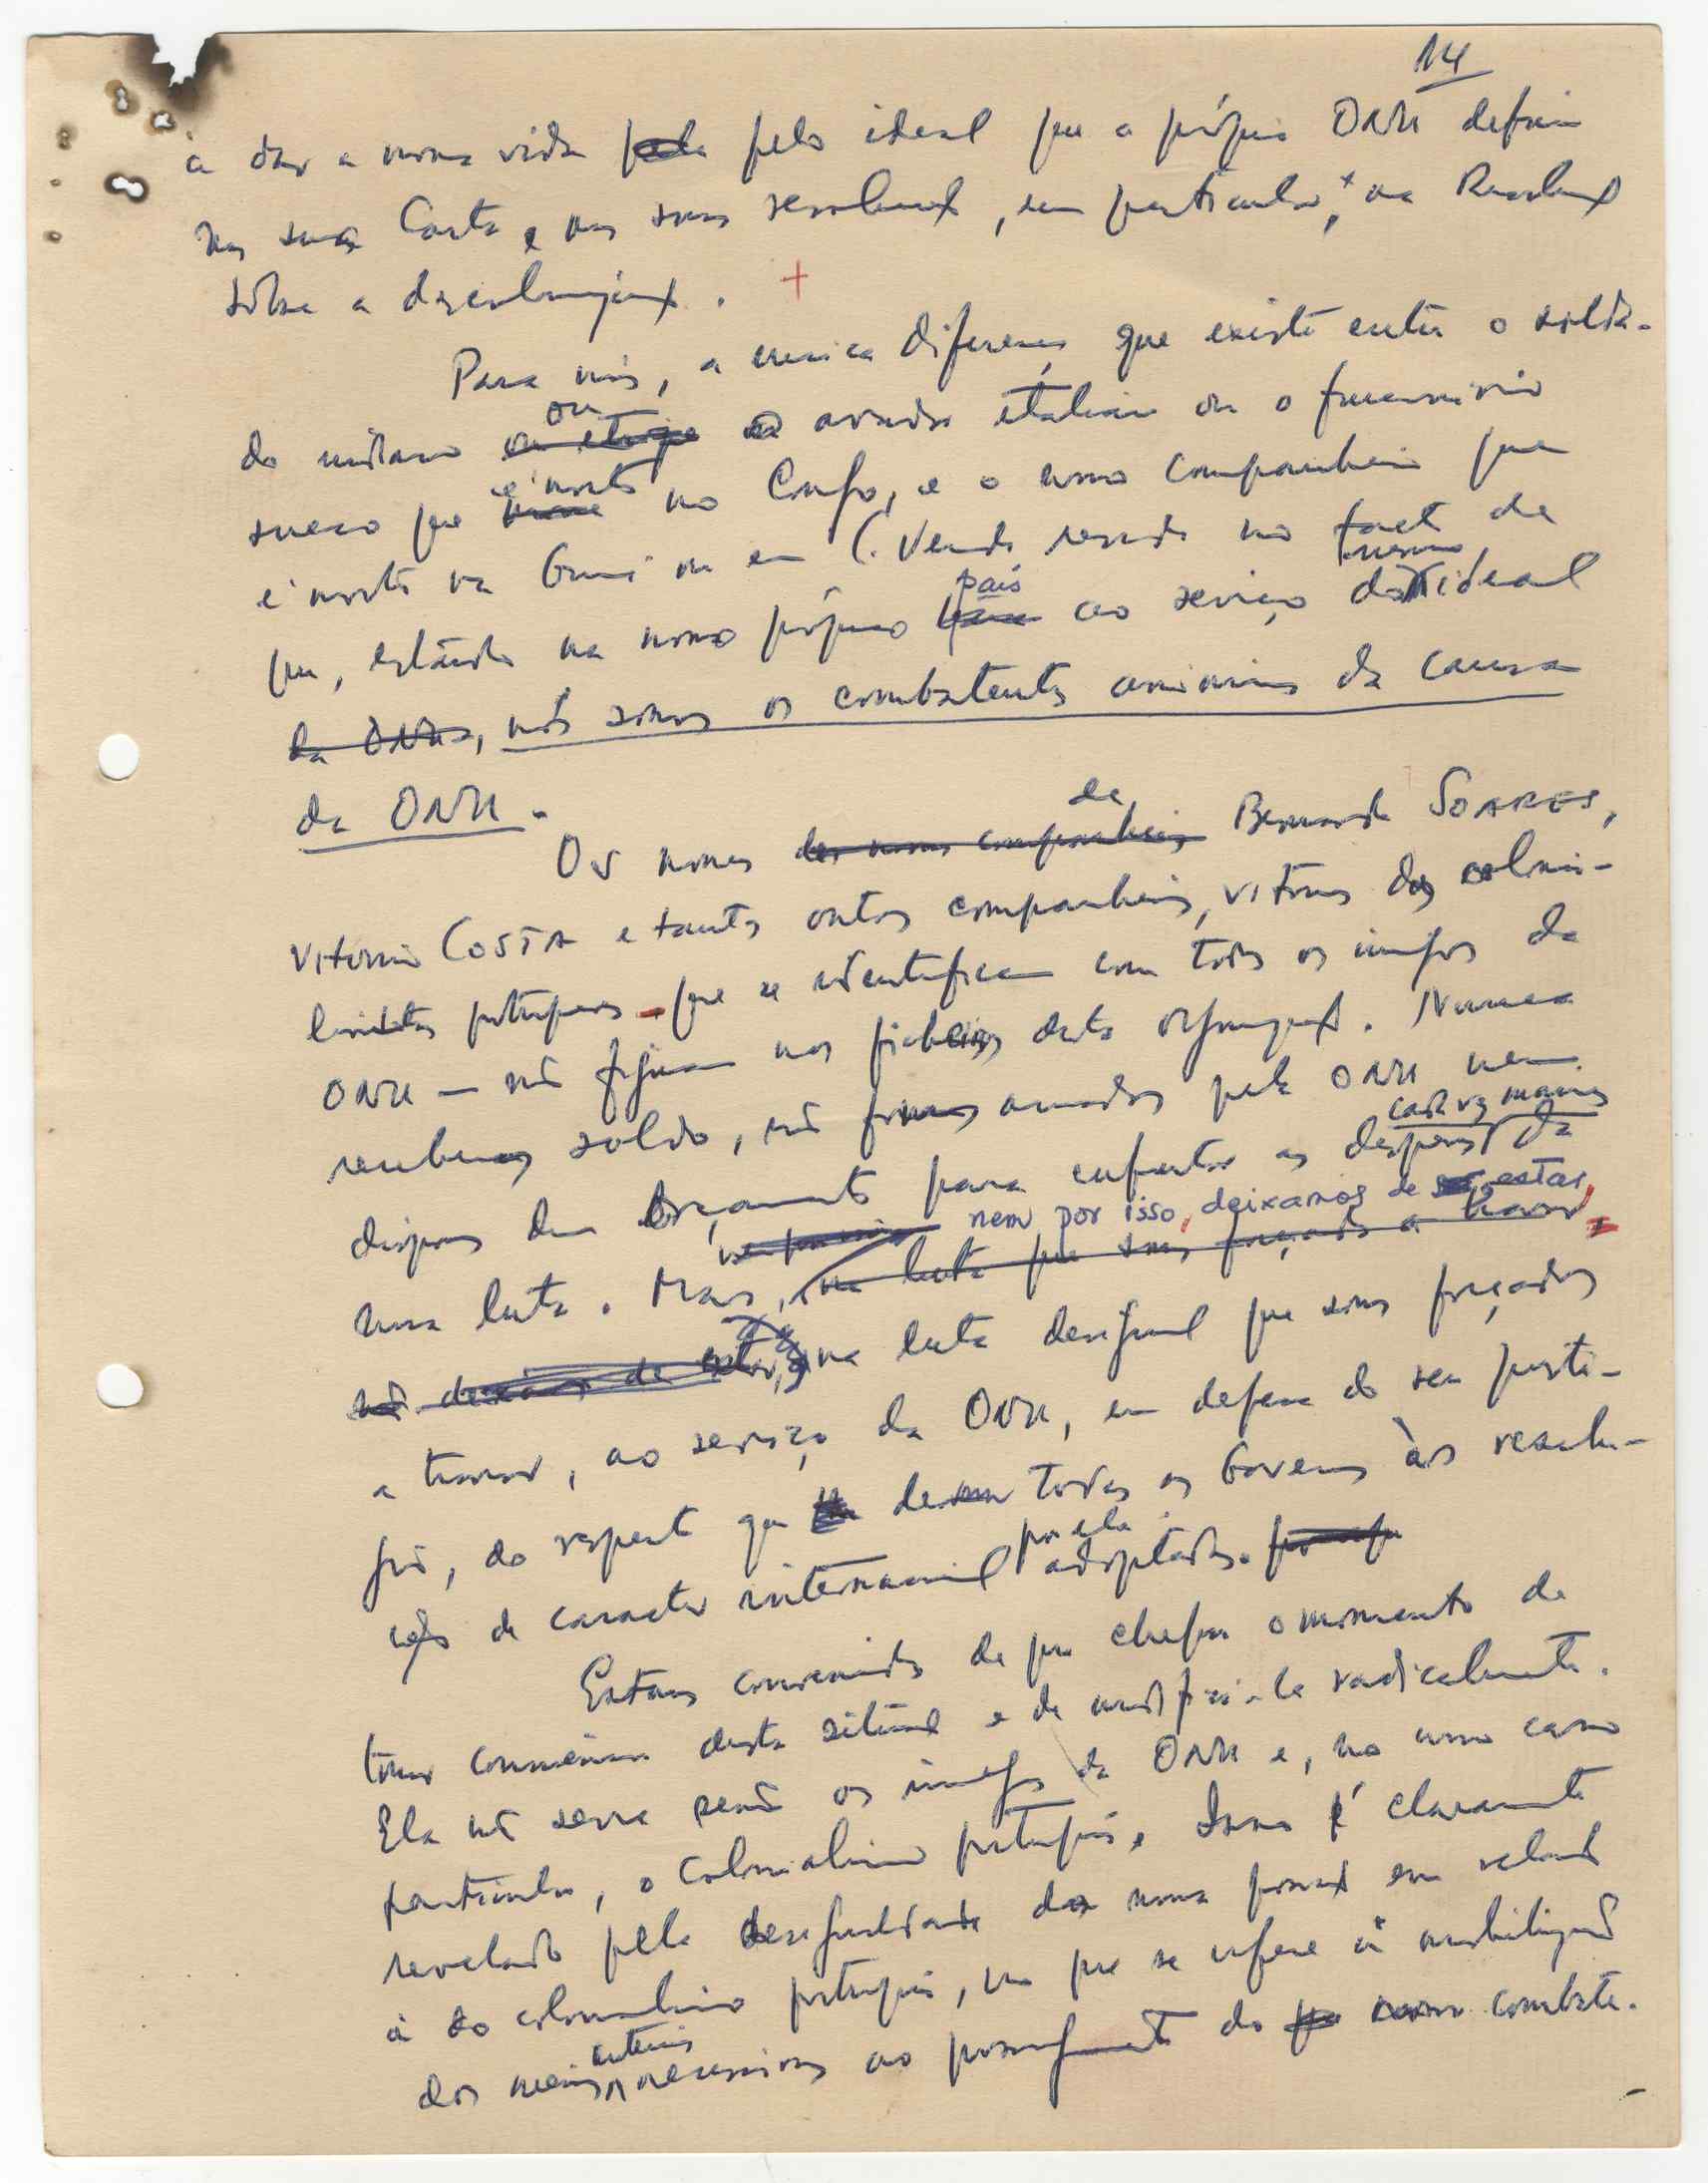 14
a dar a nossa vida pelo ideal que a própria ONU definiu
na sua Carta e nas suas resoluções, em particular, na Resolução
sôbre a descolonização. +
Para nós, a única diferença que existe entre o solda-
do indiano ou o aviador italiano ou o funcionário
sueco que é morto no Congo, e o nosso companheiro que
é morto na Guiné ou em C. Verde reside no facto de
que, estando no nosso próprio país ao serviço do mesmo ideal
da ONU, nós somos os combatentes anónimos da causa
da ONU.
Os nomes dos nossos companheiros de Bernardo SOARES,
Vitorino COSTA e tantos outros companheiros, vítimas dos colonia-
listas portugueses – que se identificam com todos os inimigos da
ONU – não figuram nos ficheiros desta organização. Nunca
recebemos soldo, não fomos armados pela ONU nem
dispomos dum orçamento para enfrentar as despesas cada vez maiores da
nossa luta. Mas, nem por isso, deixamos de estar,
na luta que somos forçados a travar,
não deixamos de estar, na luta desigual que somos forçados
a travar, ao serviço da ONU, em defesa do seu prestí-
gio, do respeito que devem todos os Governos às resolu-
ções de caracter internacional por ela adoptadas.
Estamos convencidos de que chegou o momento de
tomar consciência desta situação e de modificá-la radicalmente.
Ela não serve senão os inimigos da ONU e, no nosso caso
particular, o colonialismo português. Isso é claramente
revelado pela desigualdade da nossa posição em relação
à do colonialismo português, no que se refere à mobilização
dos meios materiais necessários ao prosseguimento do nosso combate.